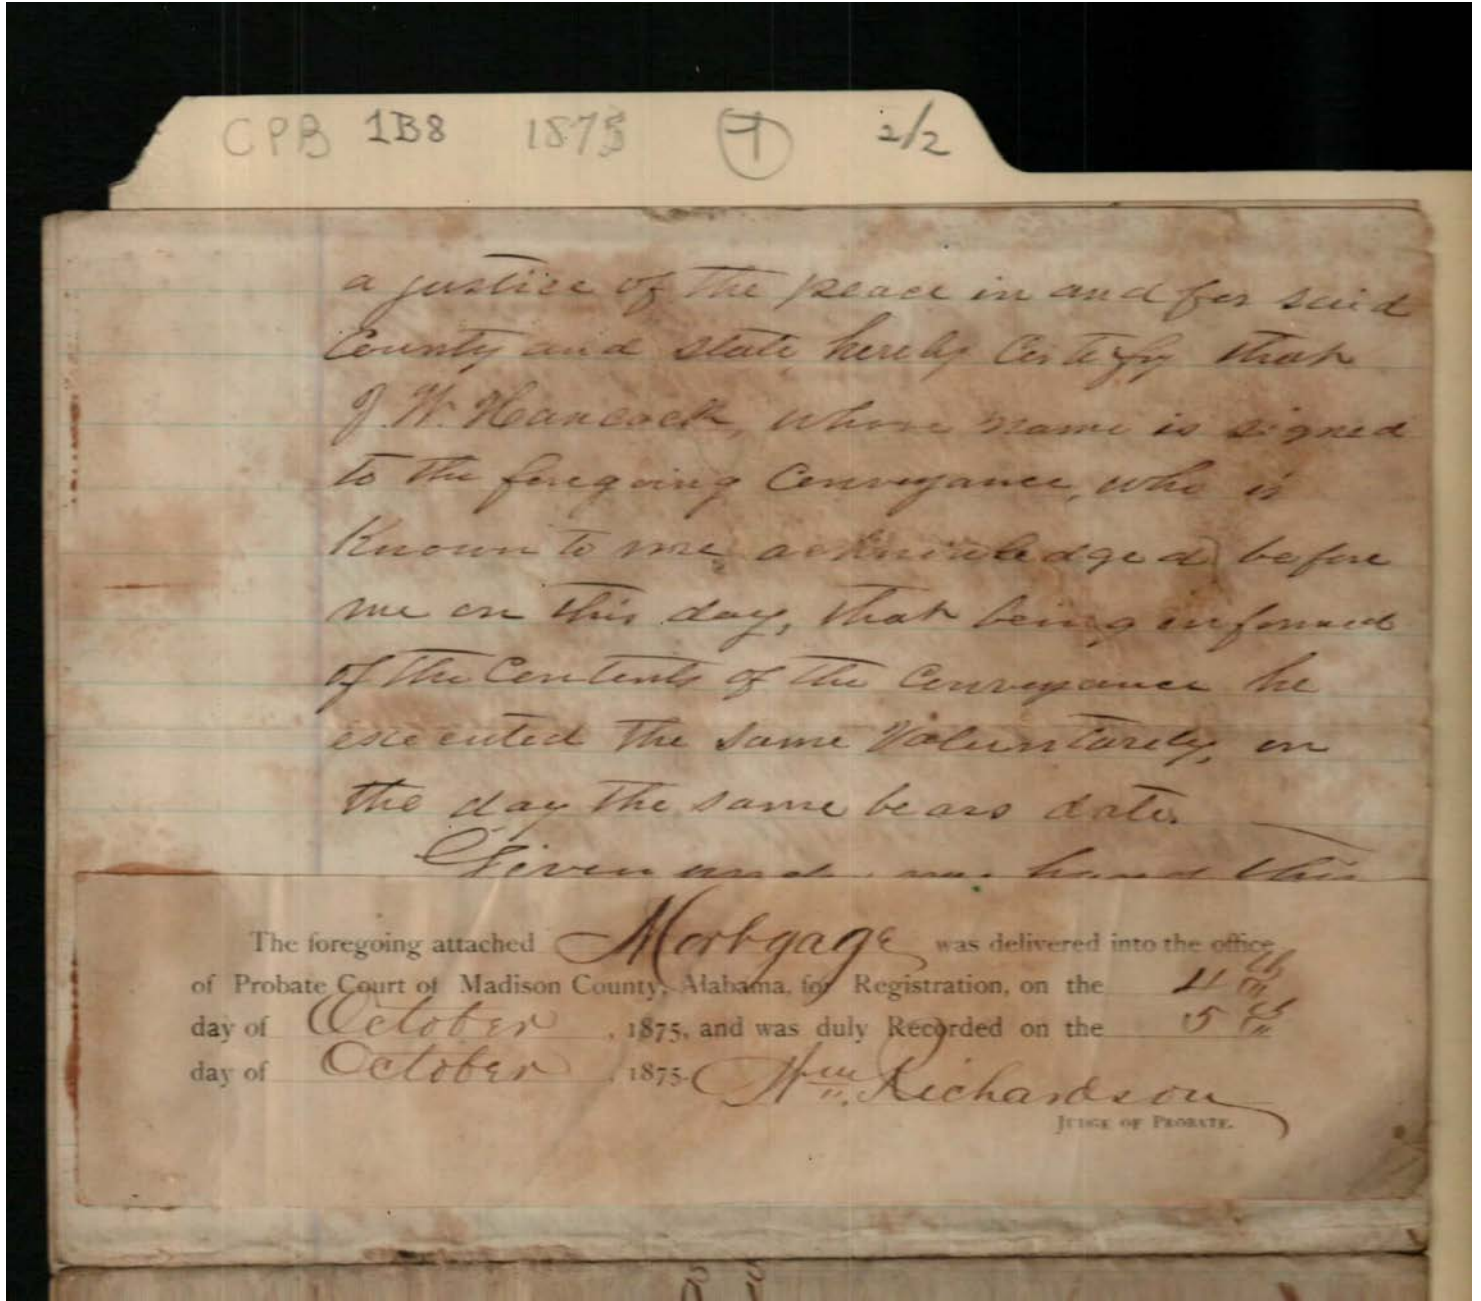 CPB 1B8 1875 T 2/2
a justice of the peace in and for said
County and state, hereby Certify that
J. W. Hancock, whose name is signed
to the foregoing Conveyance, who is
Known to me, acknowledged before
me on this day, that being informed
of the Contents of the Conveyance he
executed the same Voluntarely, on
the day the same bears date.
Given under my hand this
The foregoing attached Mortgage was delivered into the office
of Probate Court of Madison County, Alabama, for Registration, on the 4th
day of October, 1875, and was duly Recorded on the 5th
day of October, 1875. Wm. Richardson
JUDGE OF PROBATE.